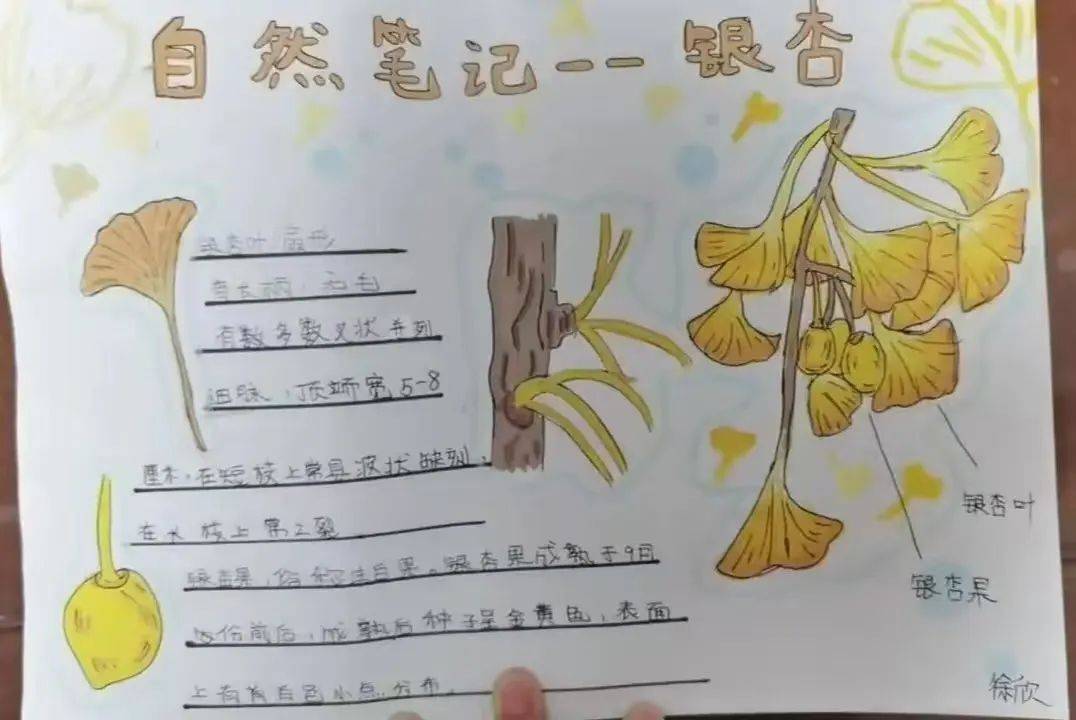 自然笔记——银杏
银杏叶 扇形
有长柄,无毛
有数多数叉状并列
细脉,顶端宽5-8
厘米,在短枝上常具波状缺刻,
在长枝上常2裂
银杏果,俗称 白果。银杏果成熟于9月
份前后,成熟后种子呈金黄色,表面
上有 白色小点分布。
银杏叶
银杏果
徐欣